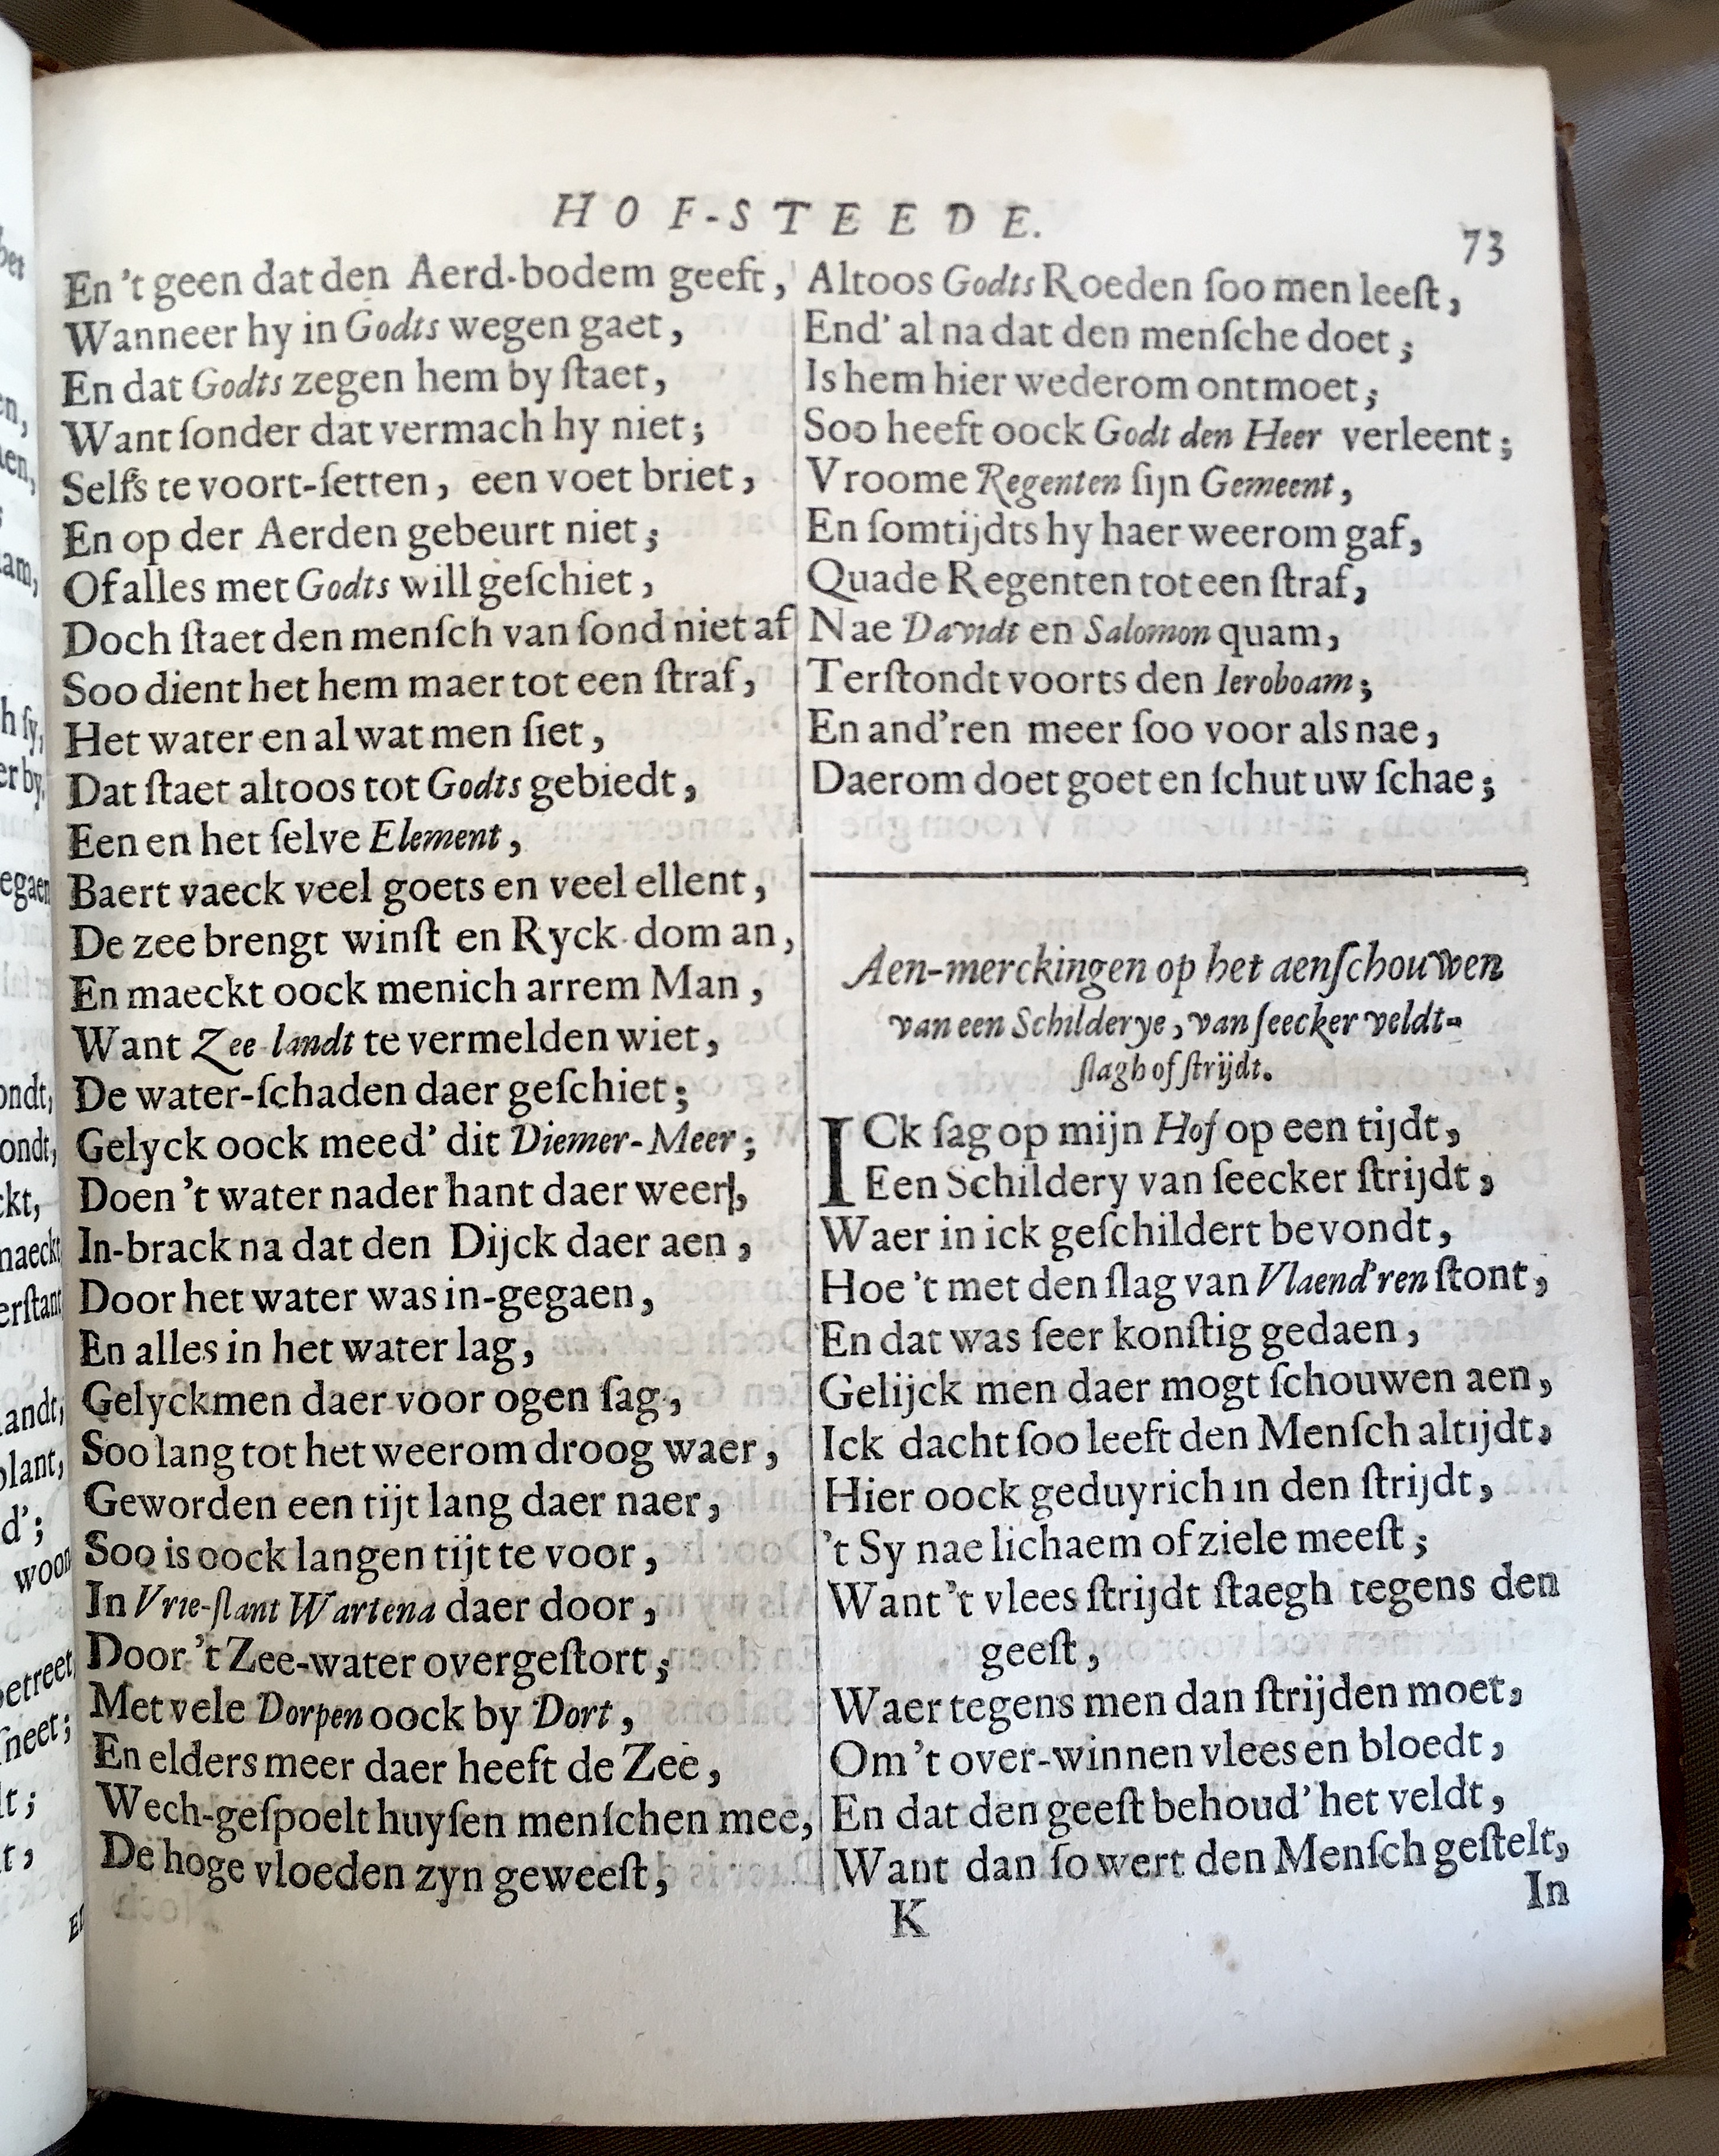 HOF-STEEDE.
73
En 't geen dat den Aerd-bodem geeft,
Wanneer hy in Godts wegen gaet,
En dat Godts zegen hem by ſtaet,
Want ſonder dat vermach hy niet;
Selfs te voort-ſetten, een voet briet,
En op der Aerden gebeurt niet;
Of alles met Godts will geſchiet,
Doch ſtaet den menſch van ſond niet af
Soo dient het hem maer tot een ſtraf,
Het water en al wat men ſiet,
Dat ſtaet altoos tot Godts gebiedt,
Een en het ſelve Element,
Baert vaeck veel goets en veel ellent,
De zee brengt winſt en Ryck-dom an,
En maeckt oock menich arrem Man,
Want Zee-landt te vermelden wiet,
De water-ſchaden daer geſchiet;
Gelyck oock meed' dit Diemer-Meer;
Doen 't water nader hant daer weer,
In-brack na dat den Dijck daer aen,
Door het water was in-gegaen,
En alles in het water lag,
Gelyckmen daer voor ogen ſag,
Soo lang tot het weerom droog waer,
Geworden een tijt lang daer naer,
Soo is oock langen tijt te voor,
In Vrie-ſlant Wartena daer door,
Door 't Zee-water overgeſtort;
Met vele Dorpen oock by Dort,
En elders meer daer heeft de Zee,
Wech-geſpoelt huyſen menſchen mee,
De hoge vloeden zyn geweeſt,
Altoos Godts Roeden ſoo men leeſt,
End' al na dat den menſche doet;
Is hem hier wederom ontmoet;
Soo heeft oock Godt den Heer verleent;
Vroome Regenten ſijn Gemeent,
En ſomtijdts hy haer weerom gaf,
Quade Regenten tot een ſtraf,
Nae Davidt en Salomon quam,
Terſtondt voorts den Ieroboam;
En and'ren meer ſoo voor als nae,
Daerom doet goet en ſchut uw ſchae;
Aen-merckingen op het aenſchouwen
van een Schilderye, van ſeecker veldt-
ſlagh of ſtrijdt.
ICk ſag op mijn Hof op een tijdt,
Een Schildery van ſeecker ſtrijdt,
Waer in ick geſchildert bevondt,
Hoe 't met den ſlag van Vlaend'ren ſtont,
En dat was ſeer konſtig gedaen,
Gelijck men daer mogt ſchouwen aen,
Ick dacht ſoo leeft den Menſch altijdt,
Hier oock geduyrich in den ſtrijdt,
't Sy nae lichaem of ziele meeſt;
Want 't vlees ſtrijdt ſtaegh tegens den
geeſt,
Waer tegens men dan ſtrijden moet,
Om 't over-winnen vlees en bloedt,
En dat den geeſt behoud' het veldt,
Want dan ſo wert den Menſch geſtelt,
K
In